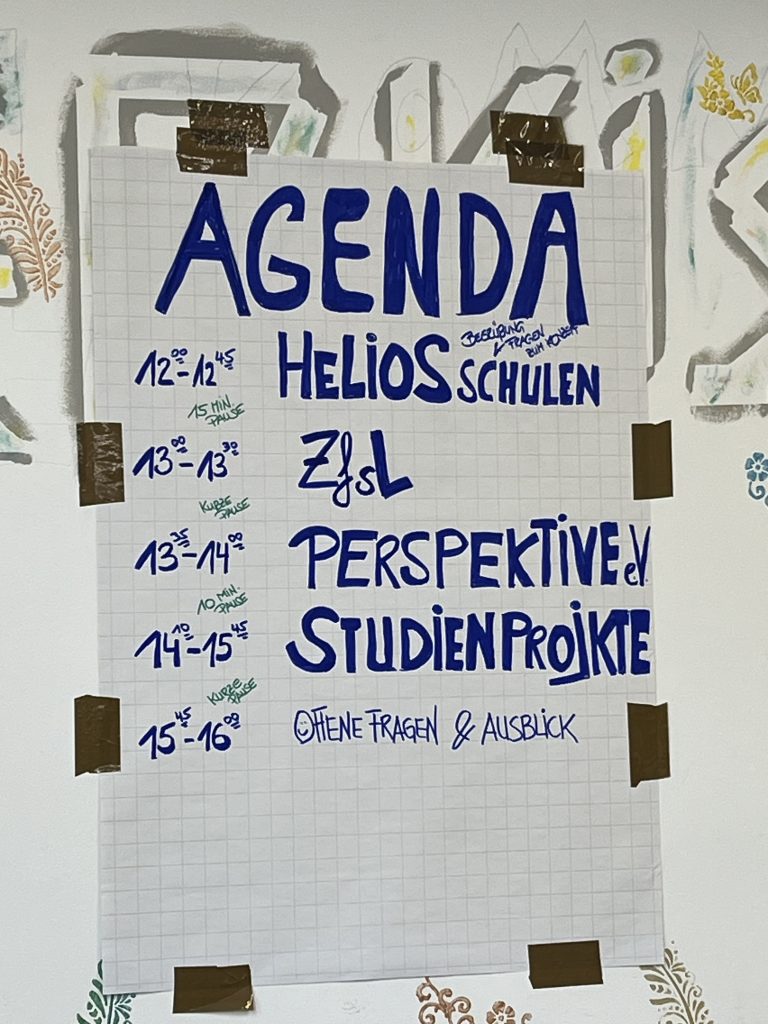 AGENDA
12⁰⁰-12⁴⁵ HELIOS SCHULEN
BEGRÜẞUNG & FRAGEN ZUM KONZEPT
15 MIN. PAUSE
13⁰⁰-13³⁰ ZfsL
KURZE PAUSE
13³⁵-14⁰⁰ PERSPEKTIVE e.V.
10 MIN. PAUSE
14¹⁰-15⁴⁵ STUDIENPROJKTE
KURZE PAUSE
15⁴⁵-16⁰⁰ OFFENE FRAGEN & AUSBLICK